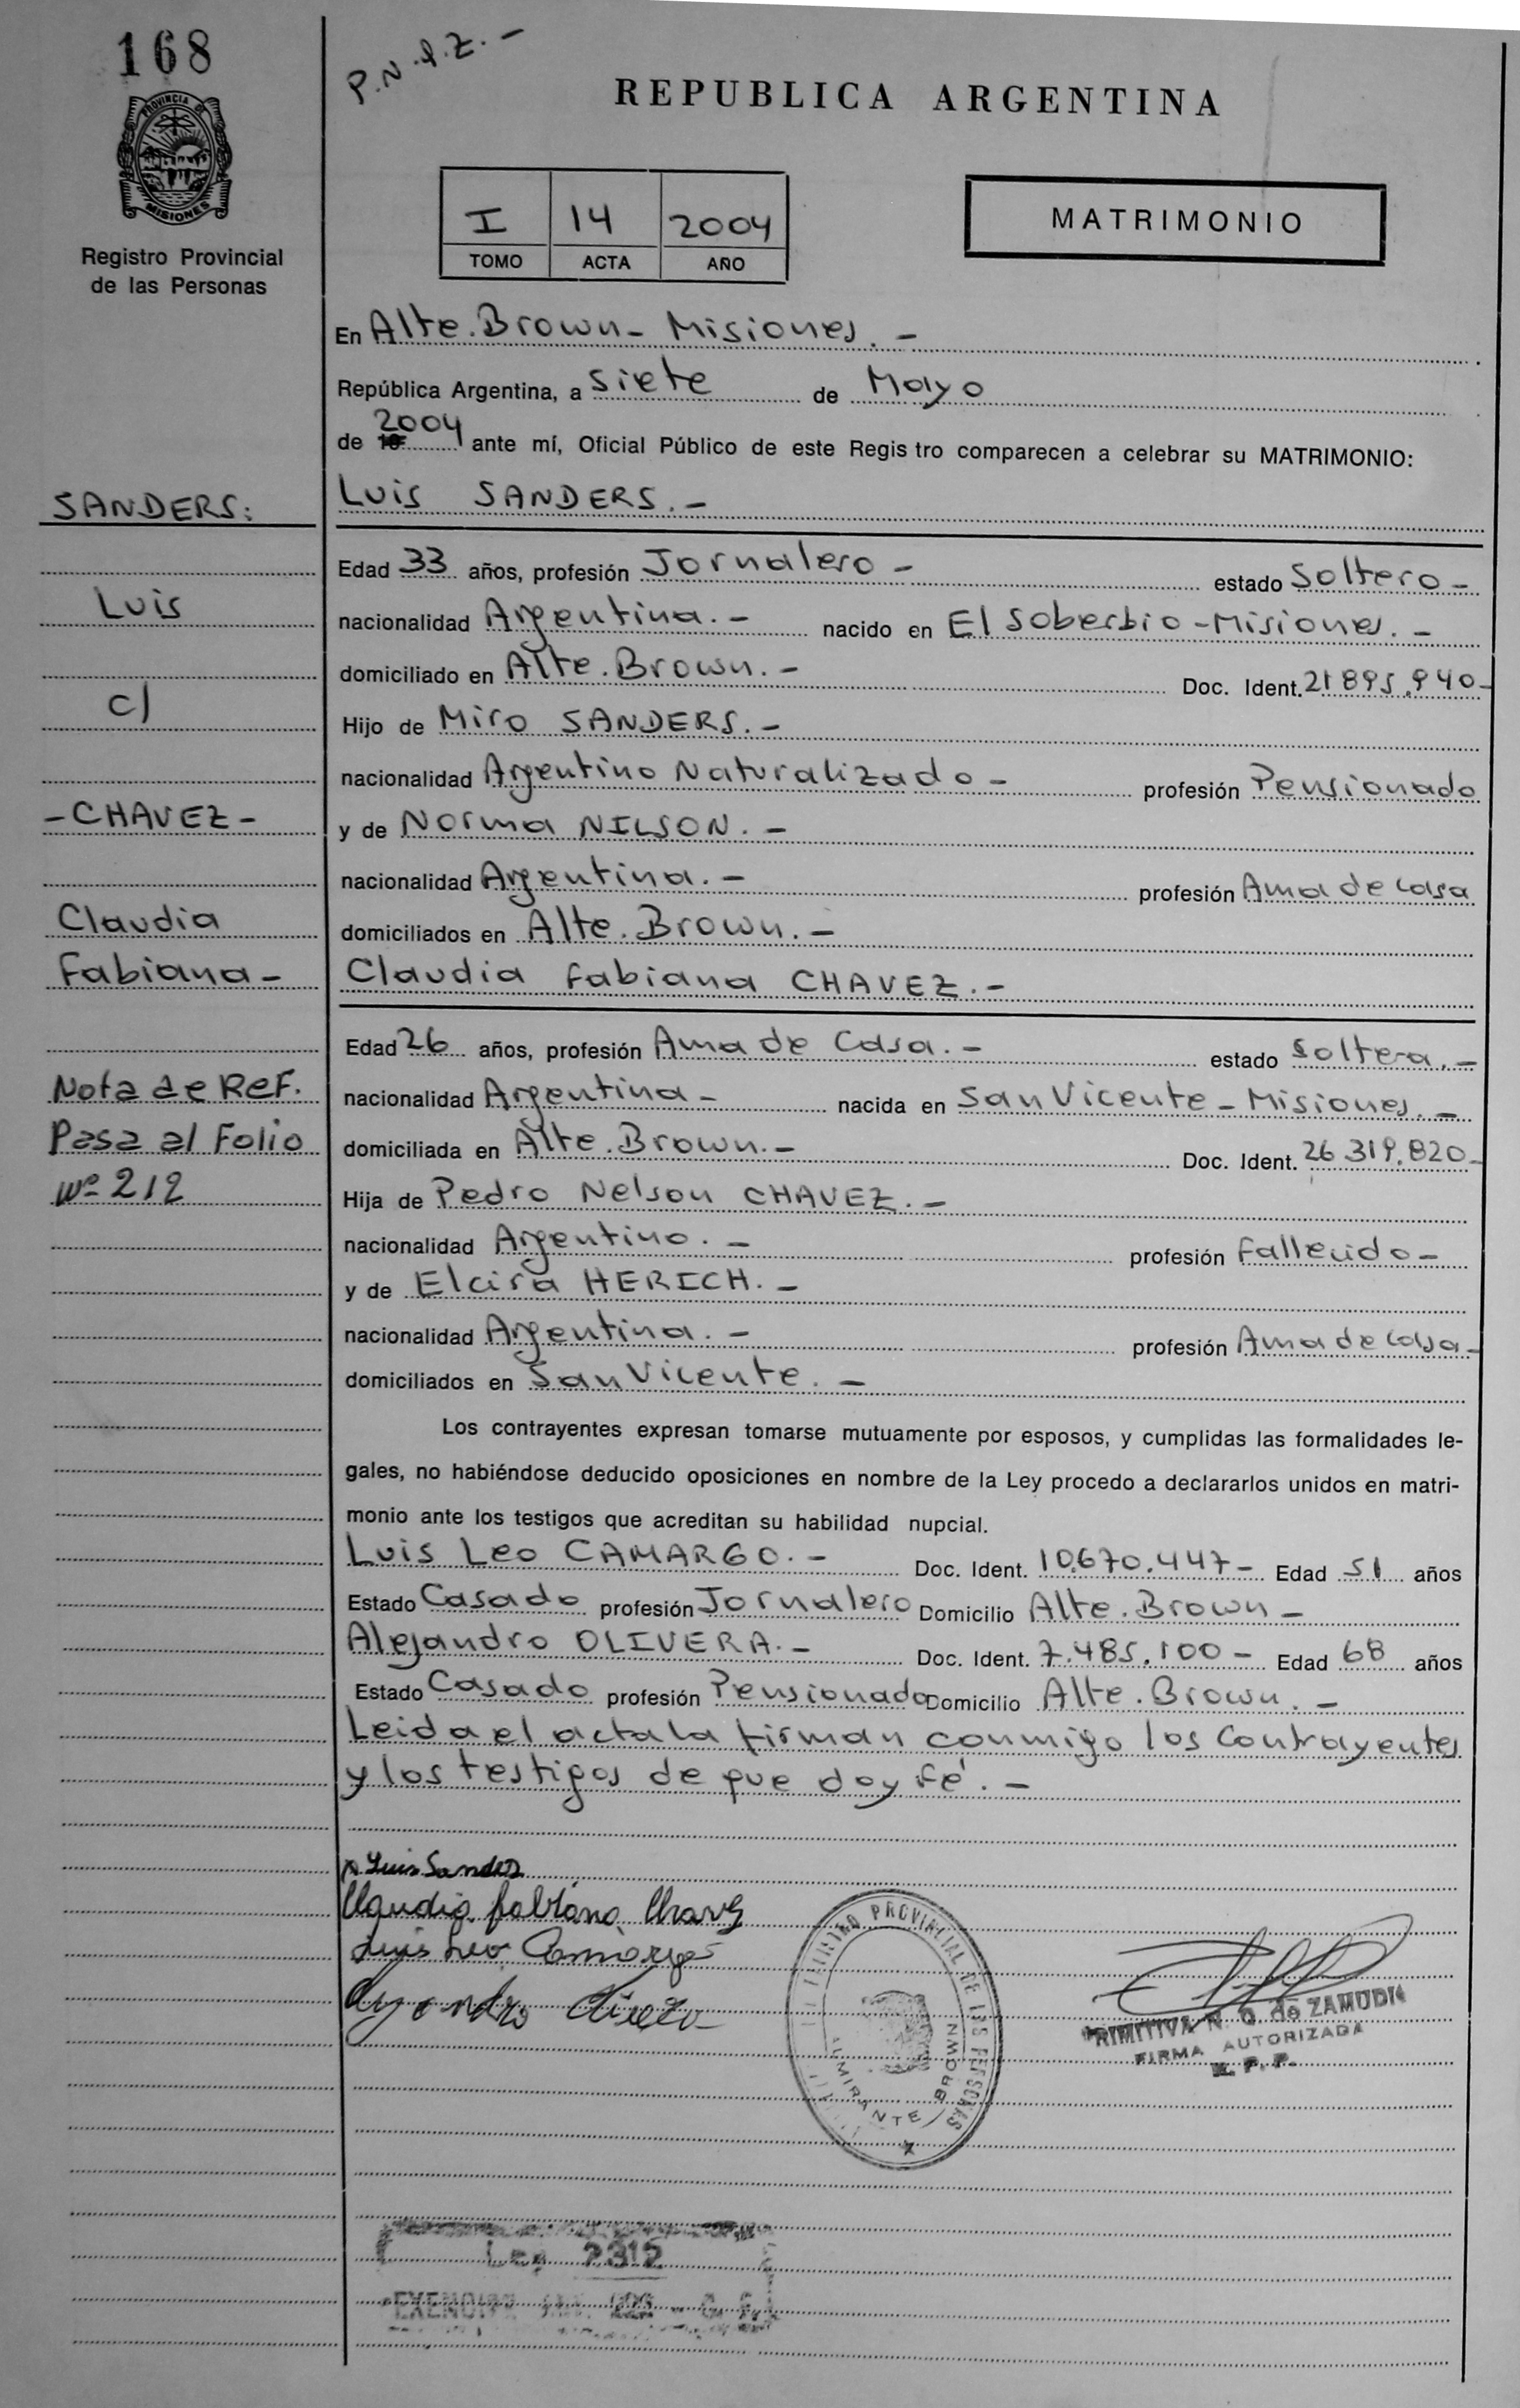 168
P.N.A.Z.-
PROVINCIA DE
MISIONES
Registro Provincial
de las Personas
REPUBLICA ARGENTINA
I 14 2004
TOMO ACTA AÑO
MATRIMONIO
En Alte. Brown - Misiones. -
República Argentina, a siete de Mayo
de 2004 ante mí, Oficial Público de este Regis tro comparecen a celebrar su MATRIMONIO:
SANDERS:
Luis SANDERS. -
Edad 33 años, profesión Jornalero - estado Soltero -
Luis
nacionalidad Argentina. - nacido en El Soberbio - Misiones. -
domiciliado en Alte. Brown. - Doc. Ident. 21 895.940 -
c/
Hijo de Miro SANDERS. -
nacionalidad Argentino Naturalizado - profesión Pensionado
- CHAVEZ -
y de Norma NILSON. -
nacionalidad Argentina. - profesión Ama de casa
Claudia
domiciliados en Alte. Brown. -
Fabiana -
Claudia Fabiana CHAVEZ. -
Edad 26 años, profesión Ama de Casa. - estado soltera. -
Nota de Ref.
nacionalidad Argentina - nacida en San Vicente - Misiones. -
Pasa al Folio
domiciliada en Alte. Brown. - Doc. Ident. 26 319.820 -
Nº 212
Hija de Pedro Nelson CHAVEZ. -
nacionalidad Argentino. - profesión Fallecido -
y de Elcira HERICH. -
nacionalidad Argentina. - profesión Ama de Casa -
domiciliados en San Vicente. -
Los contrayentes expresan tomarse mutuamente por esposos, y cumplidas las formalidades le-
gales, no habiéndose deducido oposiciones en nombre de la Ley procedo a declararlos unidos en matri-
monio ante los testigos que acreditan su habilidad nupcial.
Luis Leo CAMARGO. - Doc. Ident. 10.670.447 - Edad 51 años
Estado Casado profesión Jornalero Domicilio Alte. Brown -
Alejandro OLIVERA. - Doc. Ident. 7.485.100 - Edad 68 años
Estado Casado profesión Pensionado Domicilio Alte. Brown. -
Leida el acta la firman conmigo los Contrayentes
y los testigos de que doy fé. -
x Luis Sanders
Claudia fabiana Chavez
Luis Leo Camargo
PROVINCIAL DE LAS PERSONAS
ALMIRANTE BROWN
PRIMITIVA N. Q. de ZAMUDIO
FIRMA AUTORIZADA
R. P. P.
Ley 2312